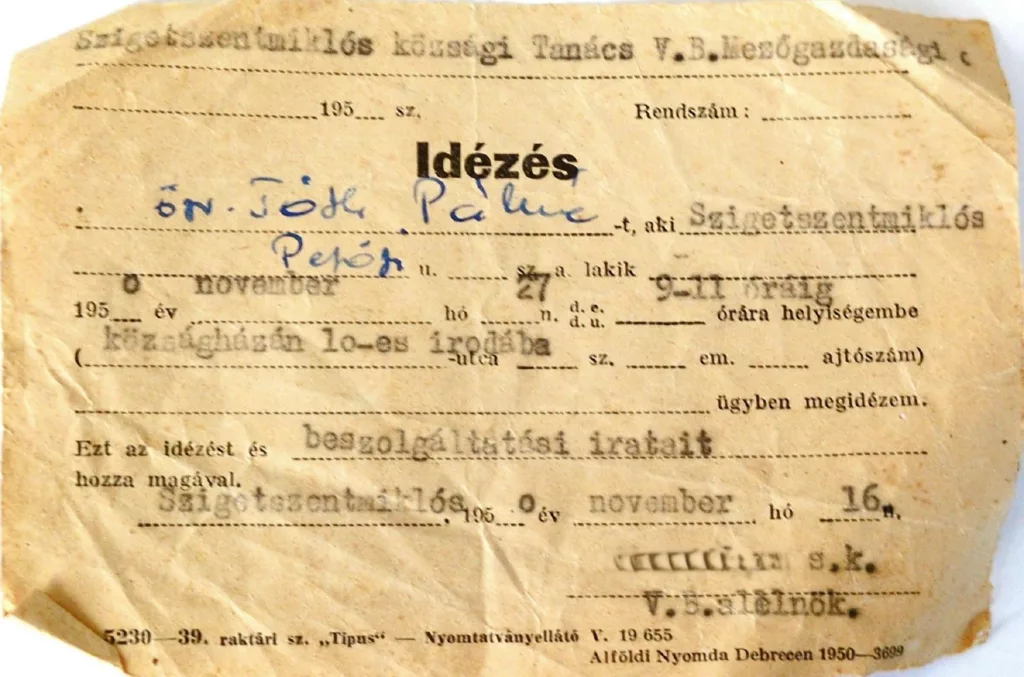 Szigetszentmiklós községi Tanács V.B.Mezőgazdasági
195 sz. Rendszám:
Idézés
özv. Tóth Pálné -t, aki Szigetszentmiklós
Petőfi u. sz. a. lakik
1950 év november hó 27 n. d. e. d. u. 9-11 óráig órára helyiségembe
(községházán lo-es irodába -utca sz. em. ajtószám)
ügyben megidézem.
Ezt az idézést és beszolgáltatási iratait
hozza magával.
Szigetszentmiklós, 195o év november hó 16 n.
s.k.
V.B.alelnök.
5230—39. raktári sz. „Tipus“ — Nyomtatványellátó V. 19 655
Alföldi Nyomda Debrecen 1950—3699